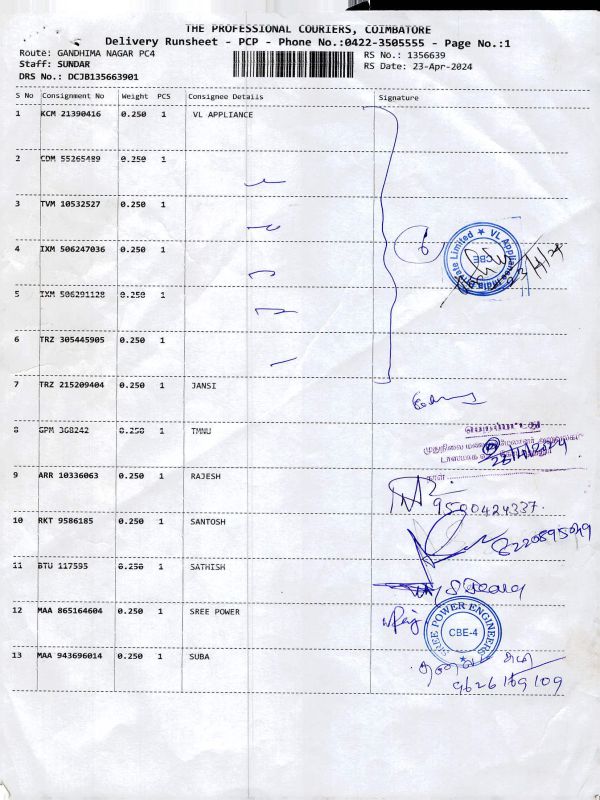 THE PROFESSIONAL COURIERS, COIMBATORE
Delivery Runsheet - PCP - Phone No.:0422-3505555 - Page No.:1
Route: GANDHIMA NAGAR PC4
RS No.: 1356639
Staff: SUNDAR
RS Date: 23-Apr-2024
DRS No.: DCJB135663901
S No Consignment No Weight PCS Consignee Details Signature
1 KCM 21390416 0.250 1 VL APPLIANCE
2 CDM 55265489 0.250 1
3 TVM 10532527 0.250 1
4 IXM 506247036 0.250 1
6
VL Appliances India Private Limited
CBE
23/4/24
5 IXM 506291128 0.250 1
6 TRZ 305445905 0.250 1
7 TRZ 215209404 0.250 1 JANSI
8 GPM 368242 0.250 1 TMNU
பெறப்பட்டது
23/4/2024
நாள்
9 ARR 10336063 0.250 1 RAJESH
9500424337
10 RKT 9586185 0.250 1 SANTOSH
8220895049
11 BTU 117595 0.250 1 SATHISH
12 MAA 865164604 0.250 1 SREE POWER
SREE POWER ENGINEERS
CBE-4
13 MAA 943696014 0.250 1 SUBA
9626169109